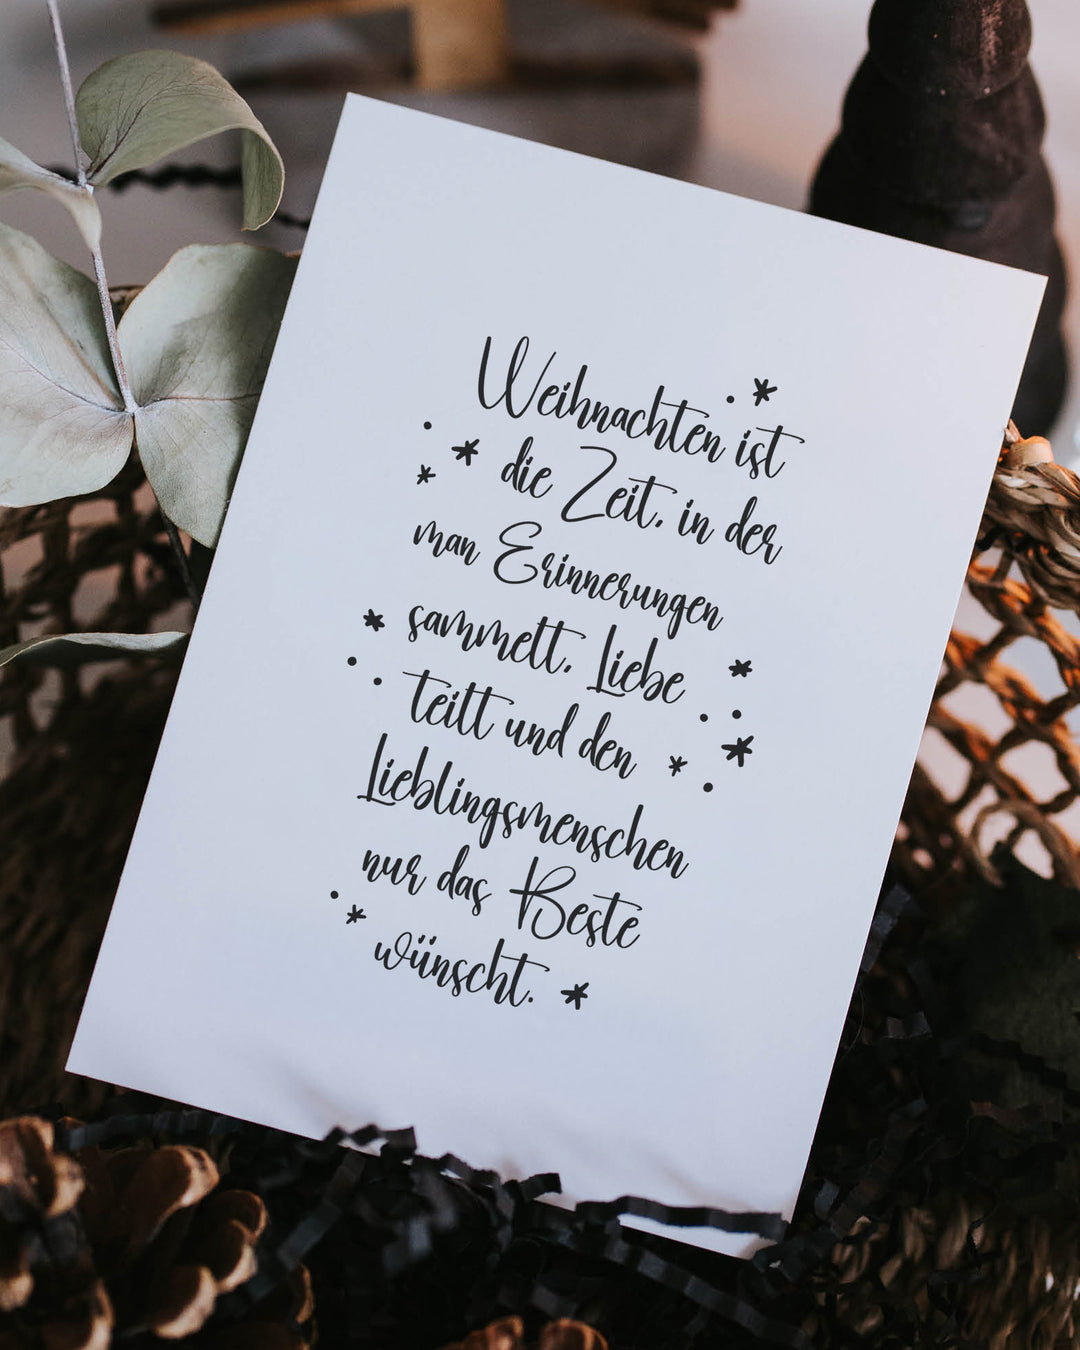 Weihnachten ist
die Zeit, in der
man Erinnerungen
sammelt, Liebe
teilt und den
Lieblingsmenschen
nur das Beste
wünscht.